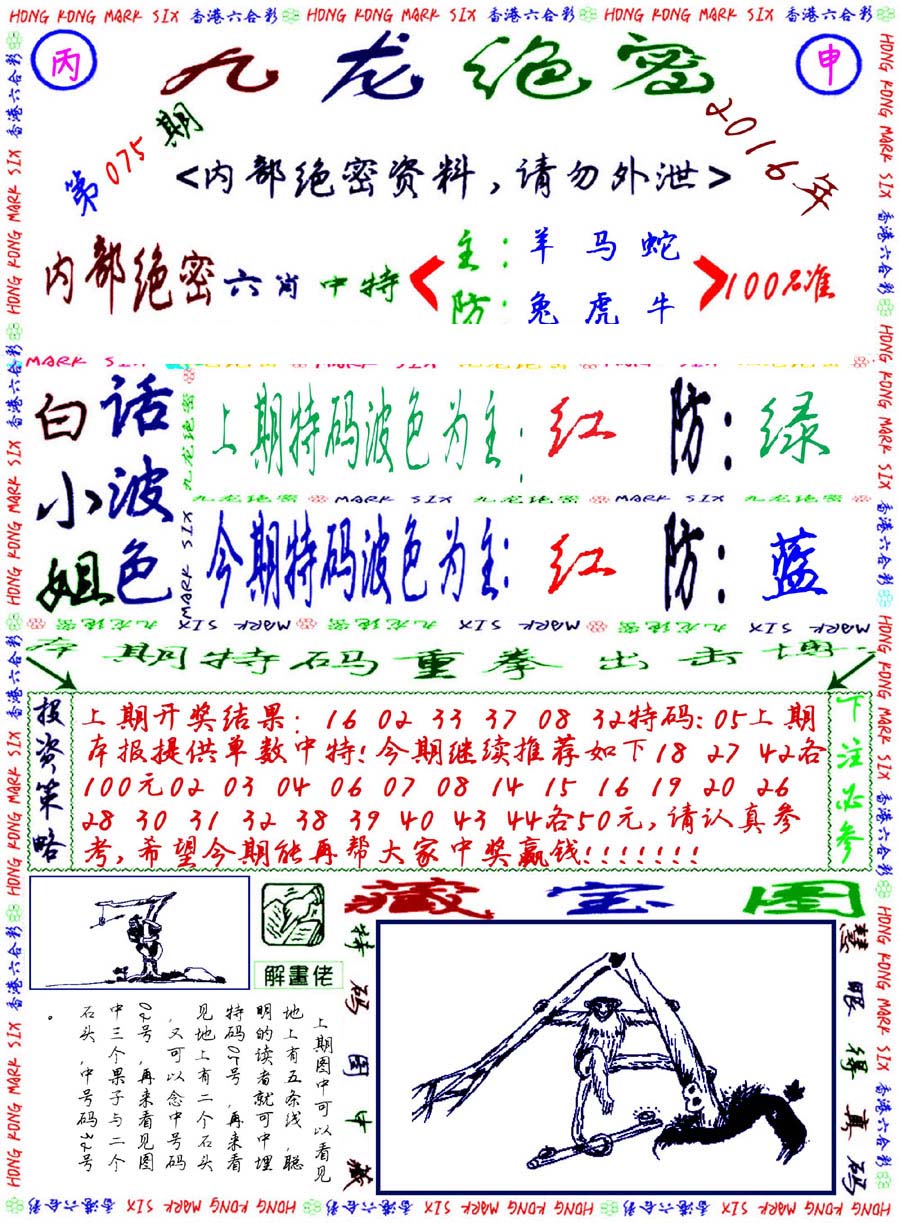 HONG KONG MARK SIX 香港六合彩 HONG KONG MARK SIX 香港六合彩 HONG KONG MARK SIX 香港六合彩
丙
九龙绝密
申
第075期
2016年
<内部绝密资料,请勿外泄>
内部绝密六肖中特
主:羊马蛇
防:兔虎牛
100%准
MARK SIX
白话小波姐色
九龙绝密
MARK SIX
上期特码波色为主:红 防:绿
九龙绝密 MARK SIX 九龙绝密 MARK SIX 九龙绝密
今期特码波色为主:红 防:蓝
九龙绝密 MARK SIX 九龙绝密 MARK SIX 九龙绝密 MARK SIX
本期特码重拳出击
投资策略
上期开奖结果: 16 02 33 37 08 32特码:05上期
本报提供单数中特!今期继续推荐如下18 27 42各
100元02 03 04 06 07 08 14 15 16 19 20 26
28 30 31 32 38 39 40 43 44各50元,请认真参
考,希望今期能再帮大家中奖赢钱!!!!!!!
下注必参
解畫佬
藏宝图
特码图中藏
慧眼缘真码
上期图中可以看见
地上有五条线,聪
明的读者就可中埋
特码05号,再来看
见地上有二个石头
,又可以念中号码
02号,再来看见图
中三个果子与二个
石头,中号码32号
。
HONG KONG MARK SIX 香港六合彩 HONG KONG MARK SIX 香港六合彩 HONG KONG MARK SIX 香港六合彩